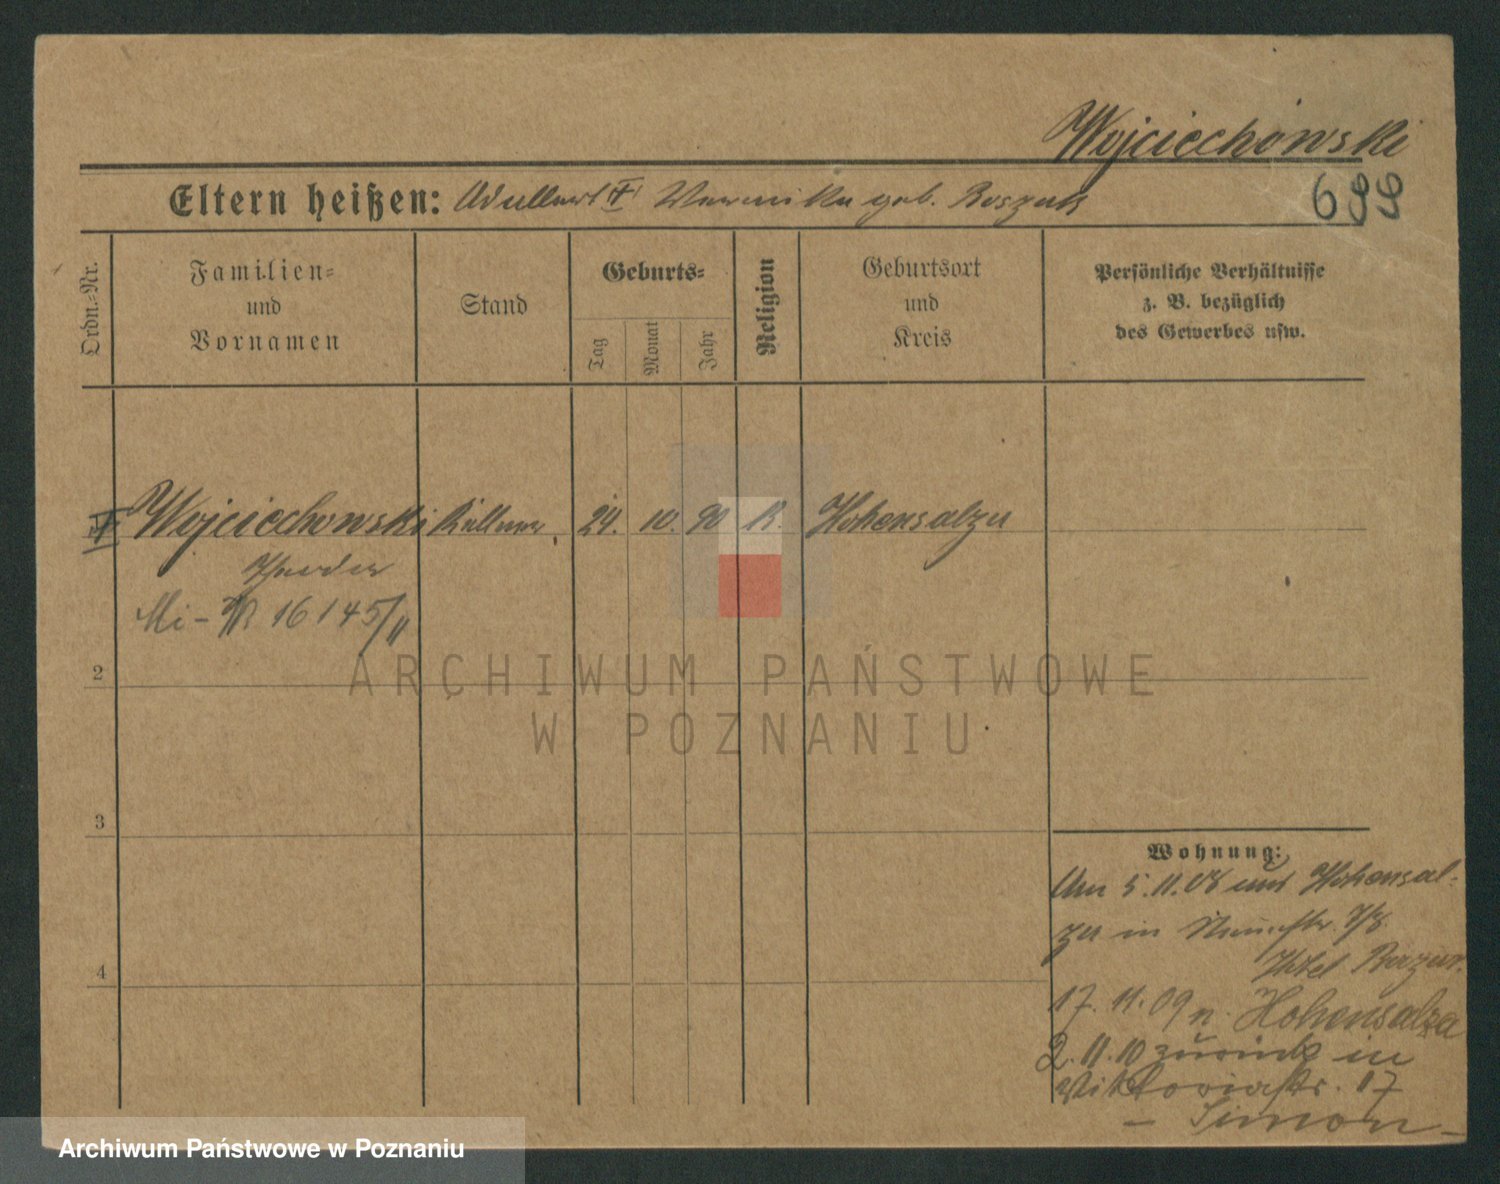 Wojciechowski
Eltern heißen: Adalbert geb.
699
Ordn.-Nr.
Familien-
und
Vornamen
Stand
Geburts-
Tag
Monat
Jahr
Religion
Geburtsort
und
Kreis
Persönliche Verhältnisse
z. B. bezüglich
des Gewerbes usw.
Wojciechowski Kellner 24. 10. 90 K. Hohensalza
Theodor
Mi - R 16145/11
2
3
4
Wohnung:
Am 5.11.08 aus Hohensal-
za in
Hotel
17.11.09 n. Hohensalza
2.11.10 zurück in
Viktoriastr. 17
- Simon -
ARCHIWUM PAŃSTWOWE
W POZNANIU
Archiwum Państwowe w Poznaniu